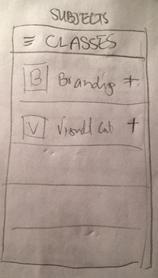 SUBJECTS
≡ CLASSES
B Branding +
V Visual +